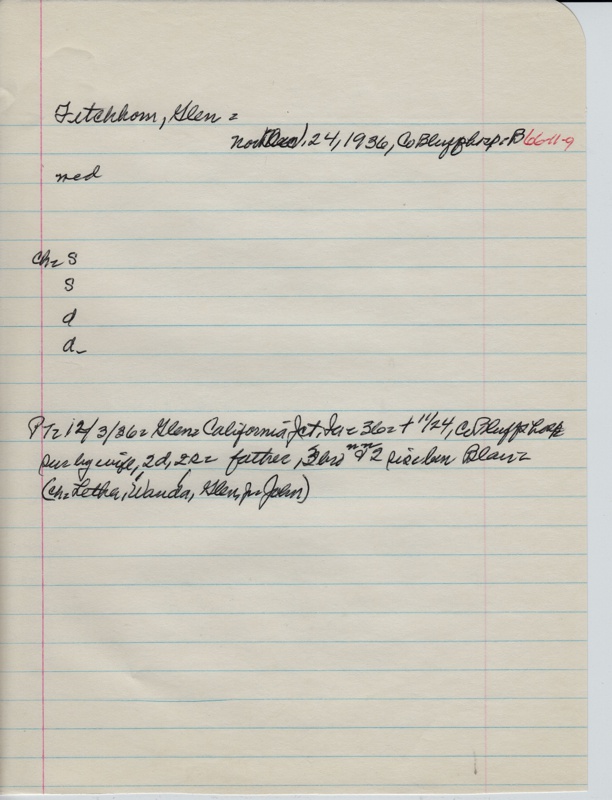 Fitchhorn, Glen =
Nov 24, 1936, Co Bluff hosp. B 66-11-9
med
ch = S
S
d
d -
PT = 12/3/36 = Glen = California Jct, Ia = 36 = + 11/24, Co Bluff hosp
sur by wife, 2d, 2s = father, 3 bro nn 9 2 sis in Blair =
(ch = Letha, Wanda, Glen, jr John)